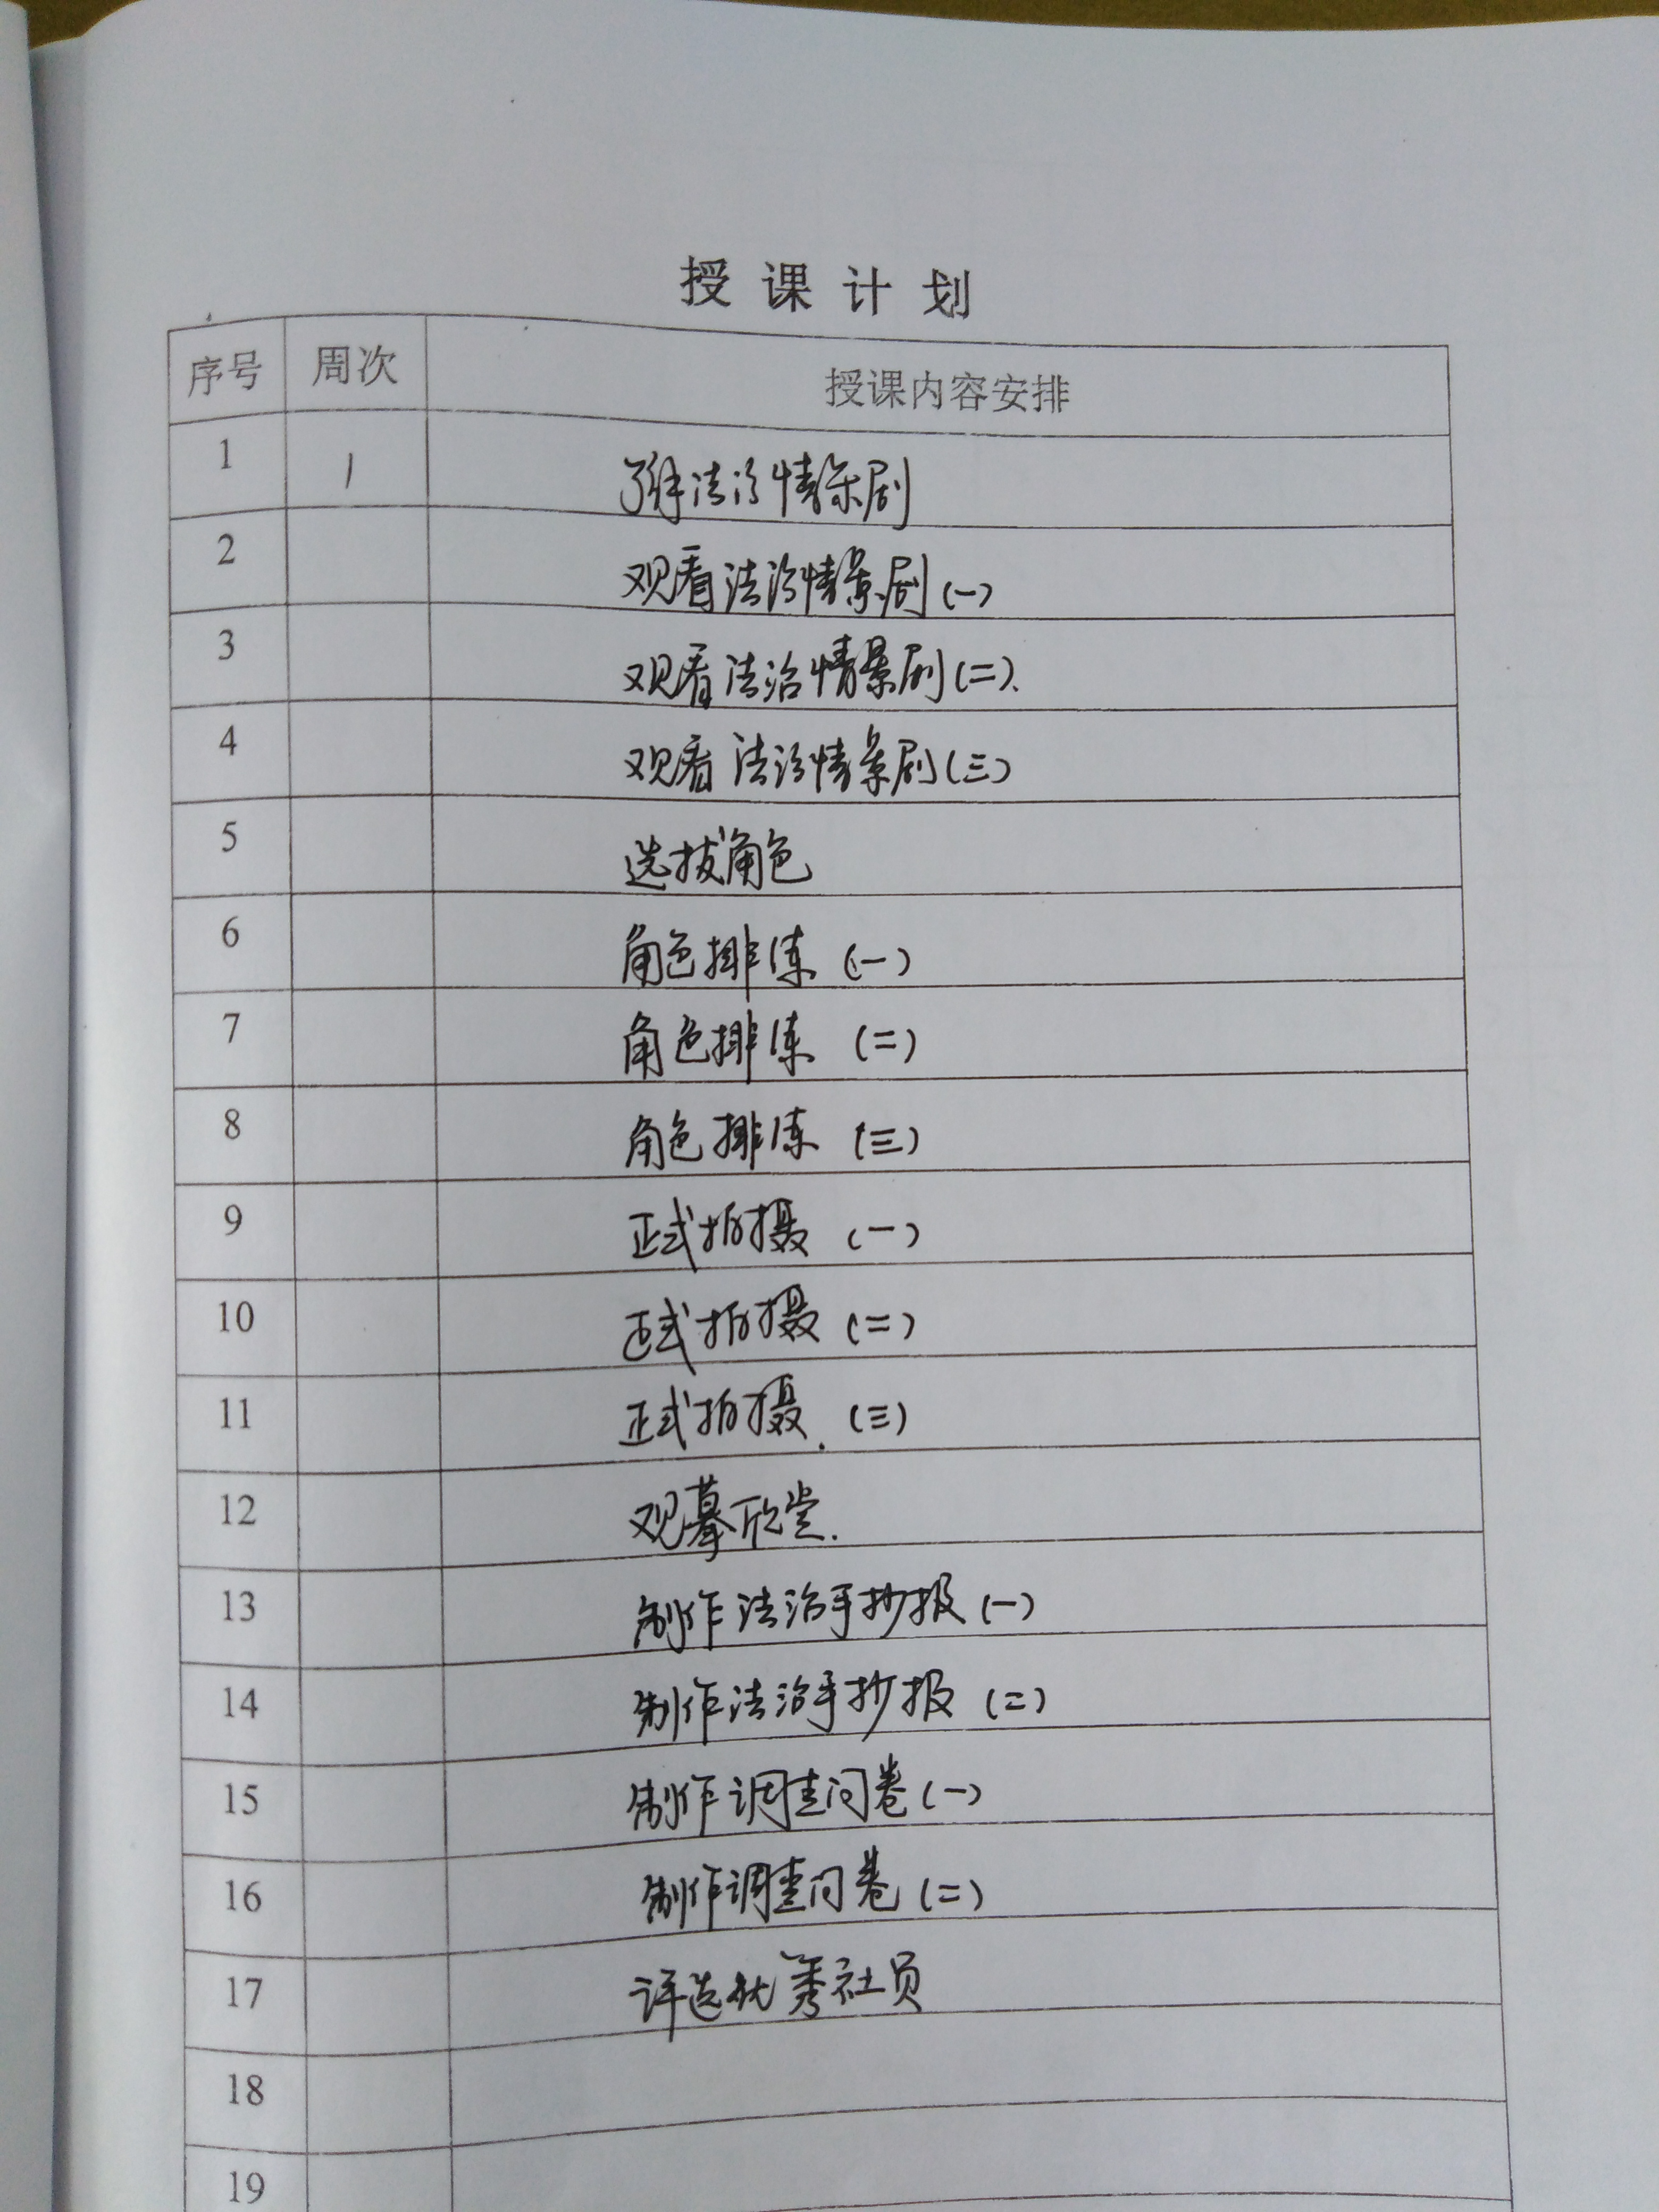 授课计划
序号 周次 授课内容安排
1 1 了解法治情景剧
2 观看法治情景剧(一)
3 观看法治情景剧(二).
4 观看法治情景剧(三)
5 选拔角色
6 角色排练(一)
7 角色排练(二)
8 角色排练(三)
9 正式拍摄(一)
10 正式拍摄(二)
11 正式拍摄.(三)
12 观摹欣赏.
13 制作法治手抄报(一)
14 制作法治手抄报(二)
15 制作调查问卷(一)
16 制作调查问卷(二)
17 评选优秀社员
18
19